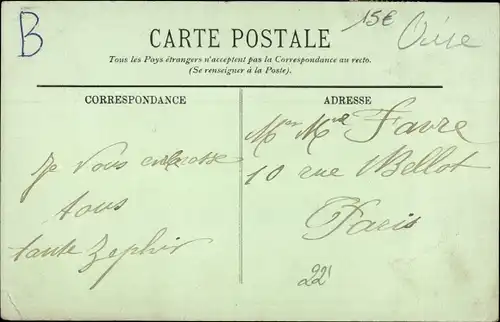 B
15€
Oise
CARTE POSTALE
Tous les Pays étrangers n'acceptent pas la Correspondance au recto.
(Se renseigner à la Poste).
CORRESPONDANCE
ADRESSE
Je vous embrasse
tous
tante Zephir
Mr Mme Favre
10 rue Bellot
Paris
22